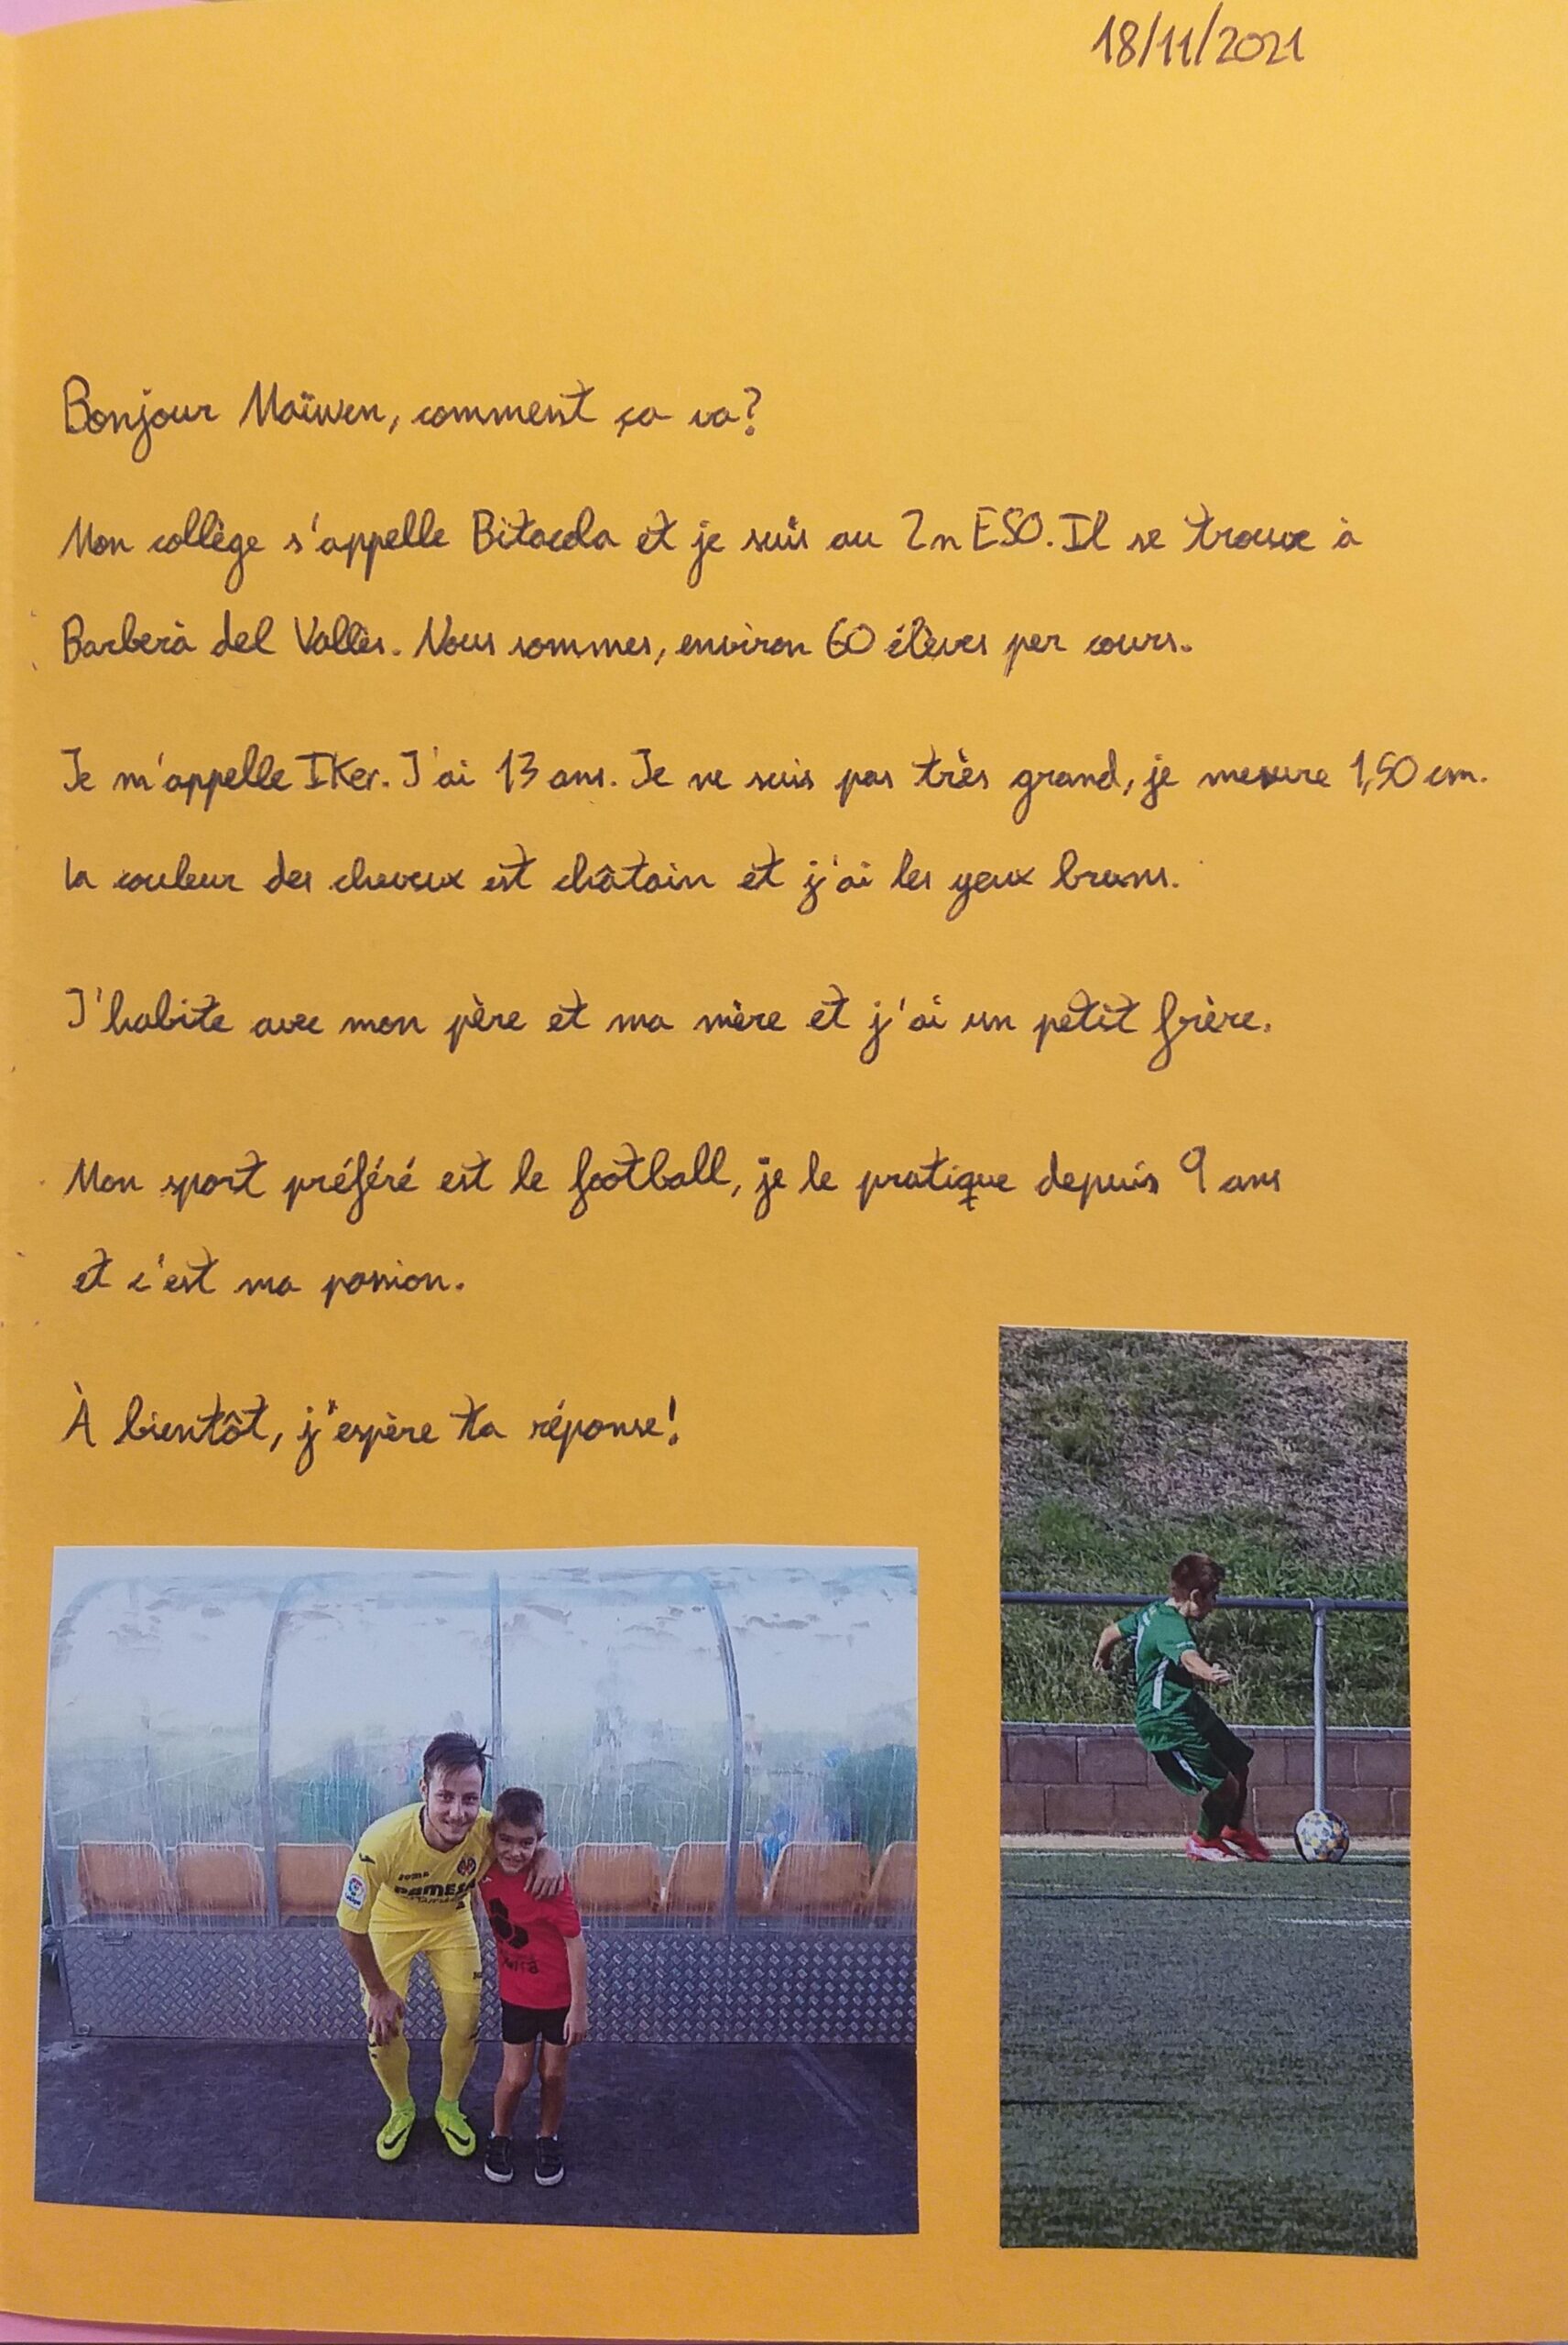 18/11/2021
Bonjour Maïwen, comment ça va?
Mon collège s'appelle Bitacola et je suis au 2n ESO. Il se trouve à
Barberà del Vallès. Nous sommes, environ 60 élèves per cours.
Je m'appelle IKer. J'ai 13 ans. Je ne suis pas très grand, je mesure 1,50 cm.
la couleur des cheveux est châtain et j'ai les yeux bruns.
J'habite avec mon père et ma mère et j'ai un petit frère.
Mon sport préféré est le football, je le pratique depuis 9 ans
et c'est ma passion.
À bientôt, j'espère ta réponse!
Joma
PAMESA